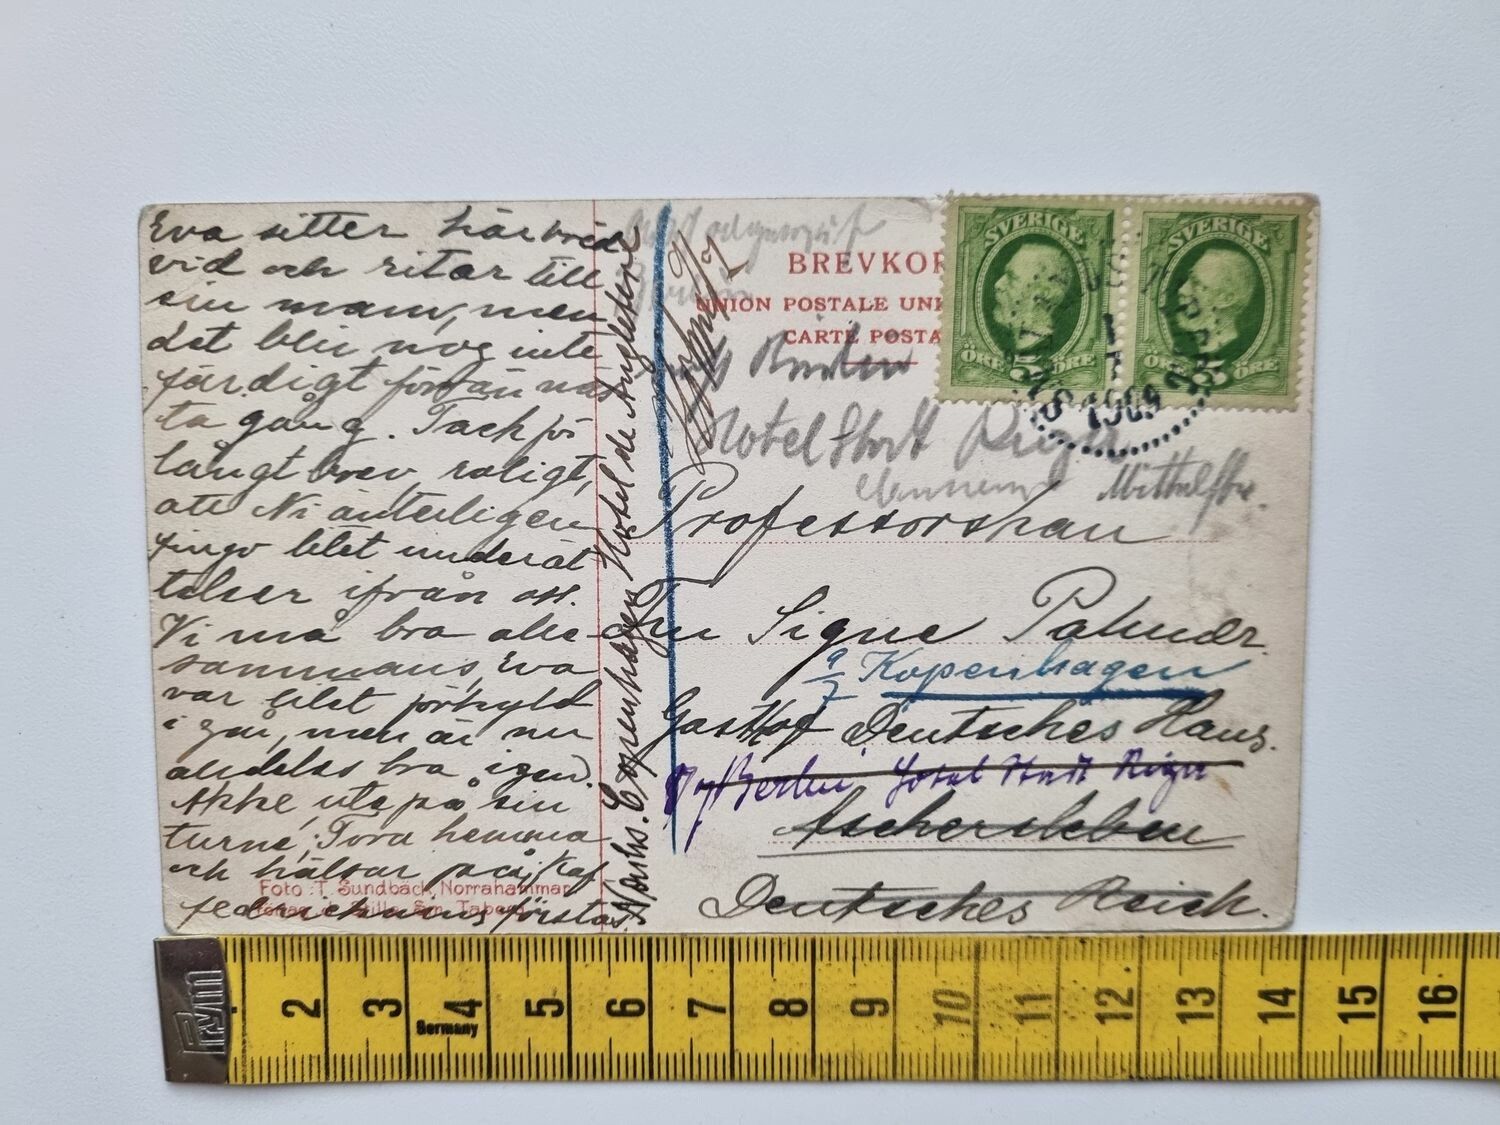 Eva sitter här bred
vid och ritar till
sin mam, men
det blir nog inte
färdigt förrän näs
ta gång. Tack för
långt brev, roligt,
att Ni äntligen
fingo litet underät
telser ifrån oss.
Vi må bra alle
sammans, Eva
var litet förkyld
i går, men är nu
alldeles bra igen.
Akke, ute på sin
turné, Tora hemma
och hälsar på,
förstås.
Foto : T. Sundbäck, Norrahammar
Taberg
Nachs. Copenhagen Hotel de Angleterre
BREVKOR
UNION POSTALE UNI
CARTE POSTA
SVERIGE
5
ÖRE ÖRE
SVERIGE
5
ÖRE ÖRE
1
7
1909
Berlin
Hotel Stadt Riga
Mittelstr.
Professorskan
Fru Signe Palmær
9/7 Kopenhagen
Gasthof Deutsches Haus.
Berlin Hotel Stadt Riga
Aschersleben
Deutsches Reich.
Prym
2 3 4 5 6 7 8 9 10 11 12 13 14 15 16
Germany